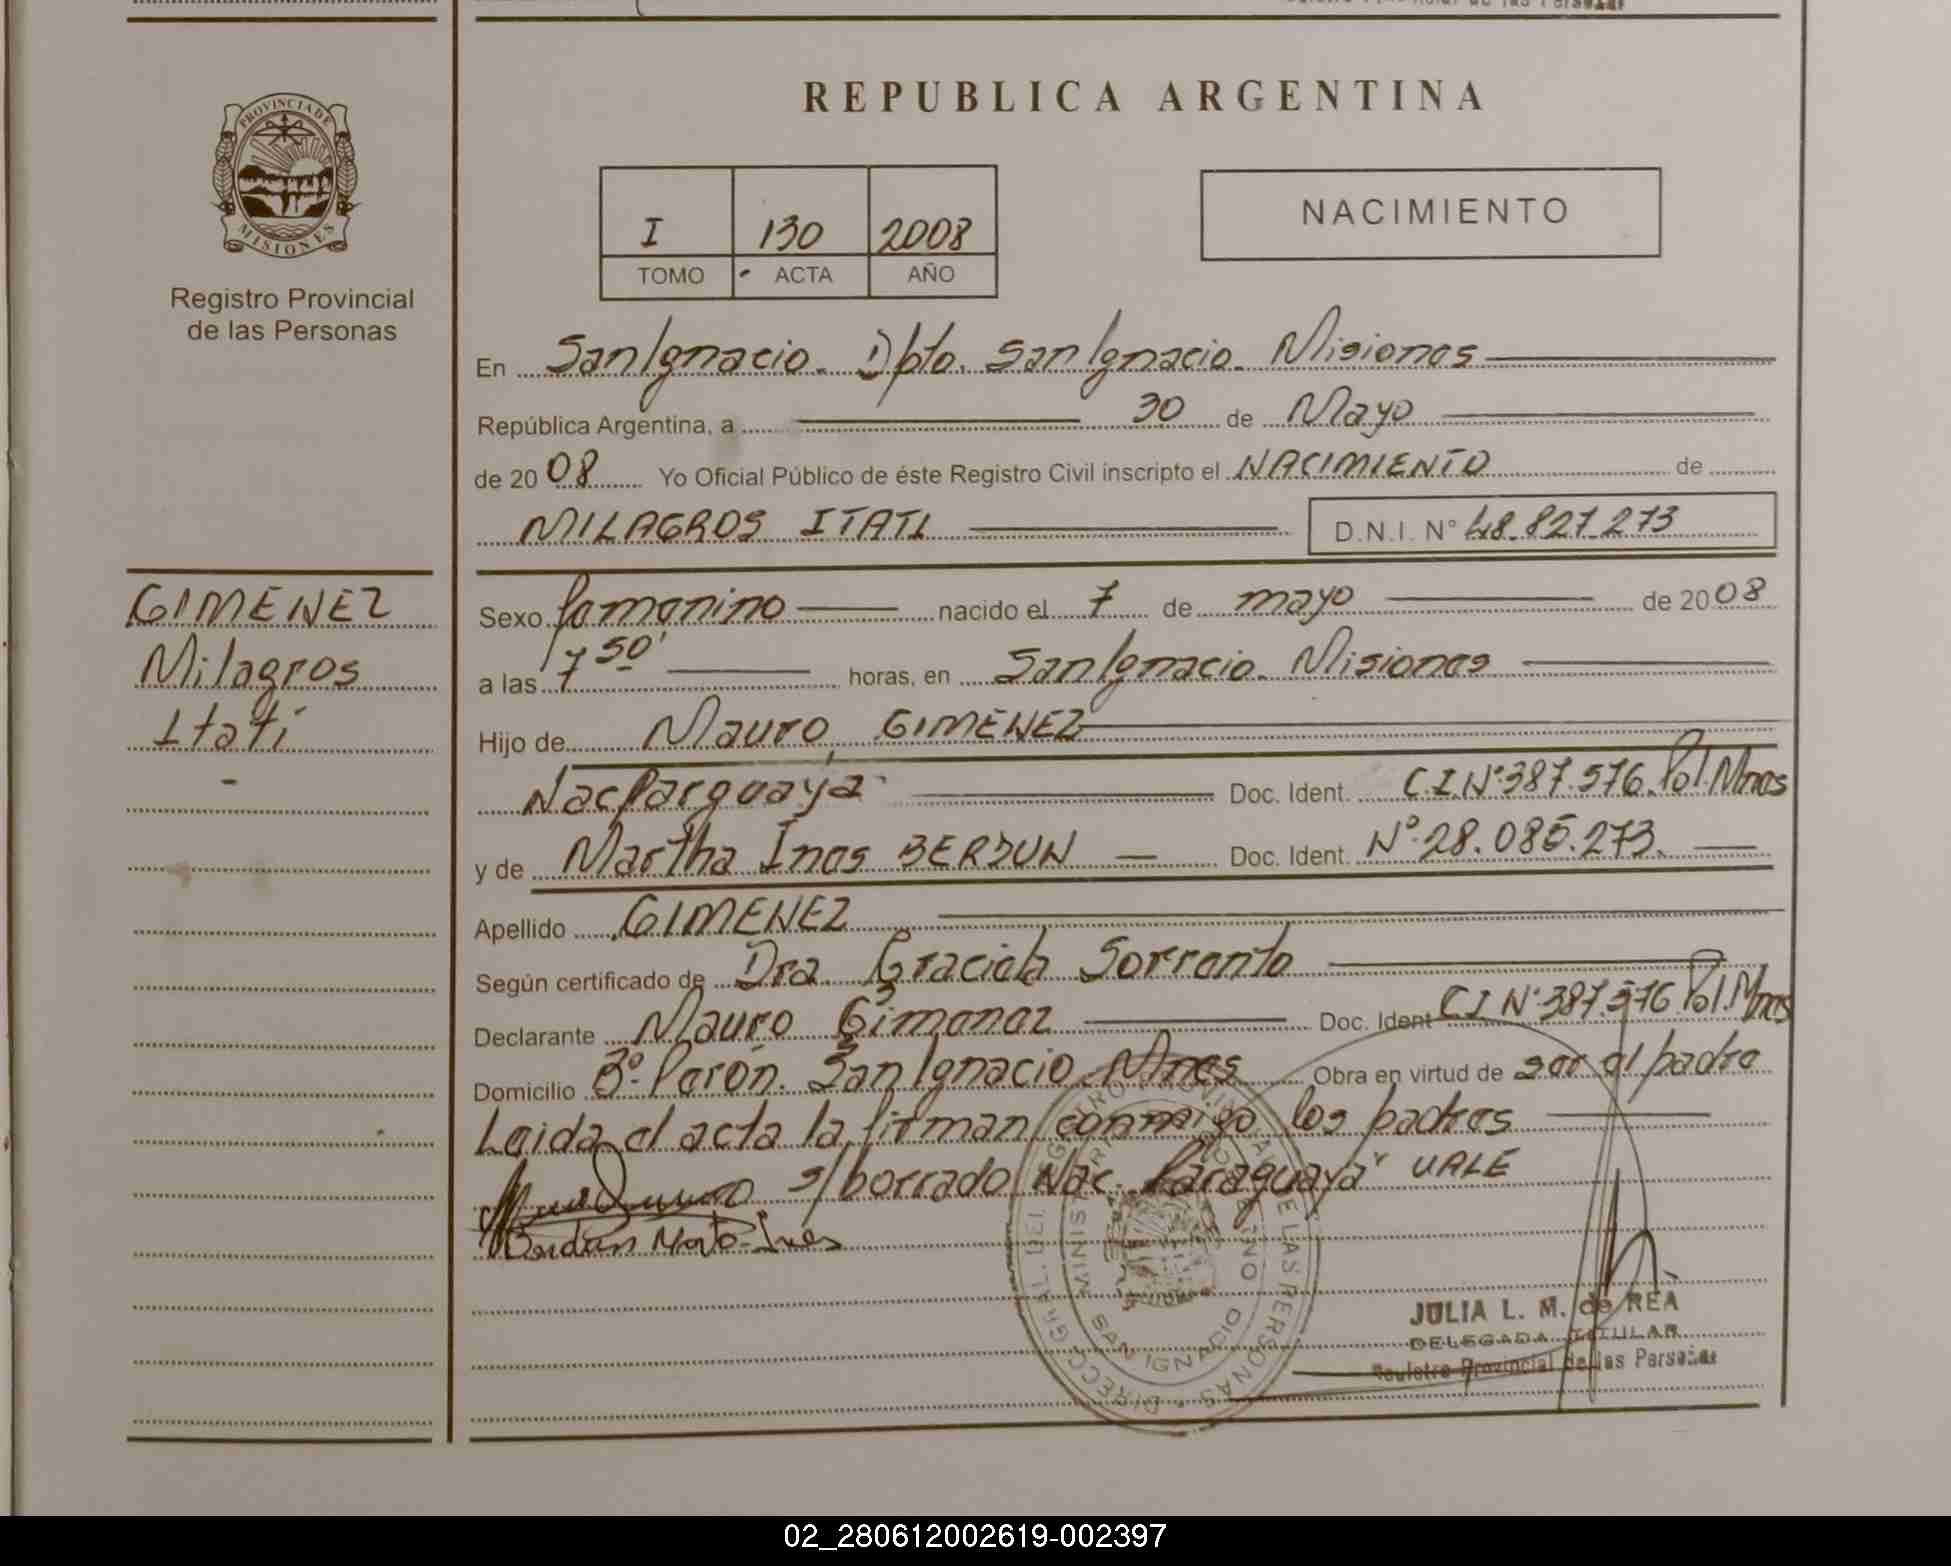 REPUBLICA ARGENTINA
PROVINCIA DE
MISIONES
Registro Provincial
de las Personas
I 130 2008
TOMO ACTA AÑO
NACIMIENTO
En San Ignacio. Dpto. San Ignacio. Misiones
República Argentina, a 30 de Mayo
de 2008 Yo Oficial Público de éste Registro Civil inscripto el NACIMIENTO de
MILAGROS ITATI D.N.I. N° 48.827.273
GIMENEZ
Milagros
Itatí
Sexo femenino nacido el 7 de mayo de 2008
a las 7 50' horas, en San Ignacio. Misiones
Hijo de Mauro GIMENEZ
Nac Parguaya Doc. Ident. C.I.N° 387.576. Pol. Mnes
y de Martha Ines BERDUN Doc. Ident. N° 28.085.273.
Apellido GIMENEZ
Según certificado de Dra Graciela Sorrento
Declarante Mauro Gimenez Doc. Ident CI N° 387.576 Pol. Mnes
Domicilio B° Perón. San Ignacio Mnes Obra en virtud de ser el padre
Leida el acta la firman conmigo los padres
s/borrado Nac. Paraguaya" VALE
SAN IGNACIO
JULIA L. M. de REA
DELEGADA TITULAR
Registro Provincial de las Personas
02_280612002619-002397